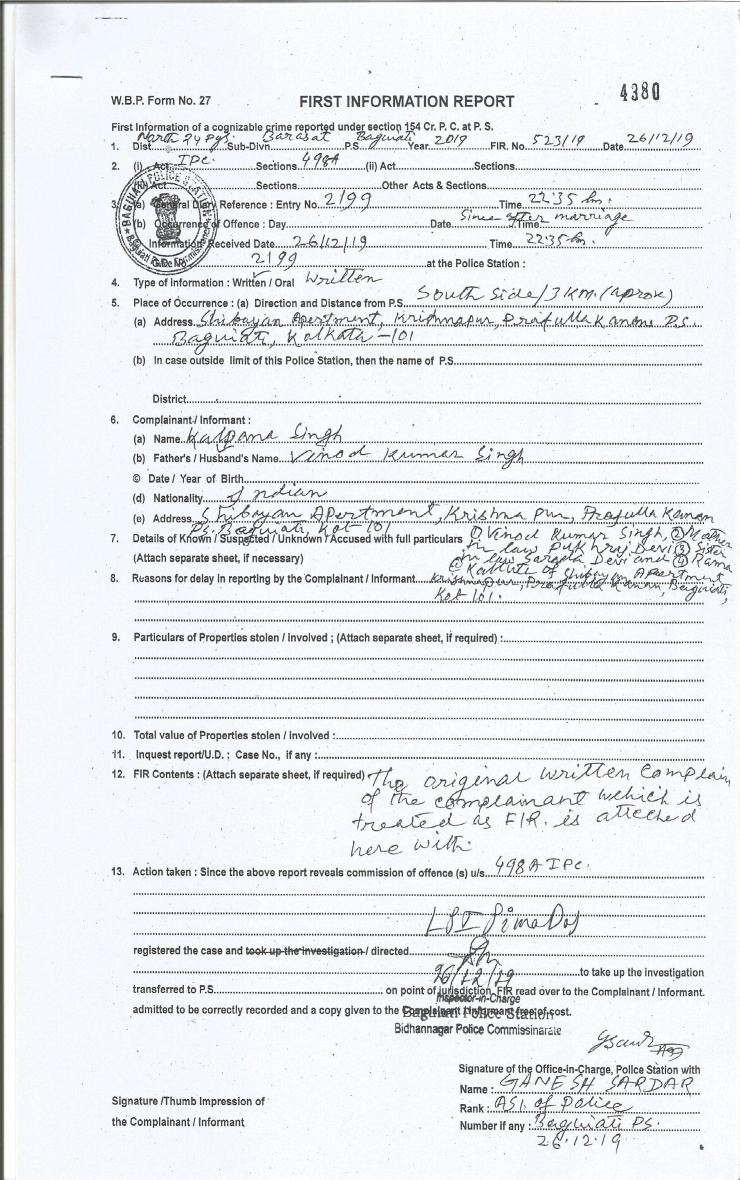 W.B.P. Form No. 27
FIRST INFORMATION REPORT
4380
First Information of a cognizable crime reported under section 154 Cr. P. C. at P. S.
1. Dist. North 24 Pgs. Sub-Divn. Barasat P.S. Baguiati Year 2019 FIR. No. 523/19 Date 26/12/19
2. (i) Act IPC. Sections 498A (ii) Act Sections
Act Sections Other Acts & Sections
3. (a) General Diary Reference : Entry No. 2199 Time 22:35 hrs.
(b) Occurrence of Offence : Day Date Since after marriage Time
Information Received Date 26/12/19 Time 22:35 hr.
G.D. No. 2199 at the Police Station :
BAGUIATI POLICE STATION
4. Type of information : Written / Oral Written
5. Place of Occurrence : (a) Direction and Distance from P.S. South Side/3 KM. (aprox)
(a) Address Shibayan Apertment, Krishnapur, Prafulla Kanan, P.S.
Baguiati, Kolkata-101
(b) In case outside limit of this Police Station, then the name of P.S.
District
6. Complainant / Informant :
(a) Name Kalpana Singh
(b) Father's / Husband's Name Vinod Kumar Singh
© Date / Year of Birth
(d) Nationality Indian
(e) Address Shibayan Apertment, Krishna pur, Prafulla Kanan
PS. Baguiati, Kol-101
7. Details of Known / Suspected / Unknown / Accused with full particulars ① Vinod Kumar Singh, ② Mother
in law Pukhraj Devi ③ Sister
(Attach separate sheet, if necessary) in law Sargata Devi and ④ Rama
of Shibayan Apertment
8. Reasons for delay in reporting by the Complainant / Informant Krishnapur, Prafulla Kanan, Baguiati,
Kol-101.
9. Particulars of Properties stolen / Involved ; (Attach separate sheet, if required) :
10. Total value of Properties stolen / involved :
11. Inquest report/U.D. ; Case No., if any :
12. FIR Contents : (Attach separate sheet, if required) The original written Complain
of the complainant which is
treated as FIR. is atteched
here with.
13. Action taken : Since the above report reveals commission of offence (s) u/s. 498A IPC.
LSI Pima Das
registered the case and took up the investigation / directed
26/12/19 to take up the investigation
transferred to P.S. on point of jurisdiction, FIR read over to the Complainant / Informant.
Inspector-in-Charge
admitted to be correctly recorded and a copy given to the Complainant / Informant free of cost.
Baguiati Police Station
Bidhannagar Police Commissinarate
Signature of the Office-In-Charge, Police Station with
Name : GANESH SARDAR
Signature /Thumb Impression of
Rank : ASI. of Police
the Complainant / Informant
Number if any : Baguiati PS.
26.12.19